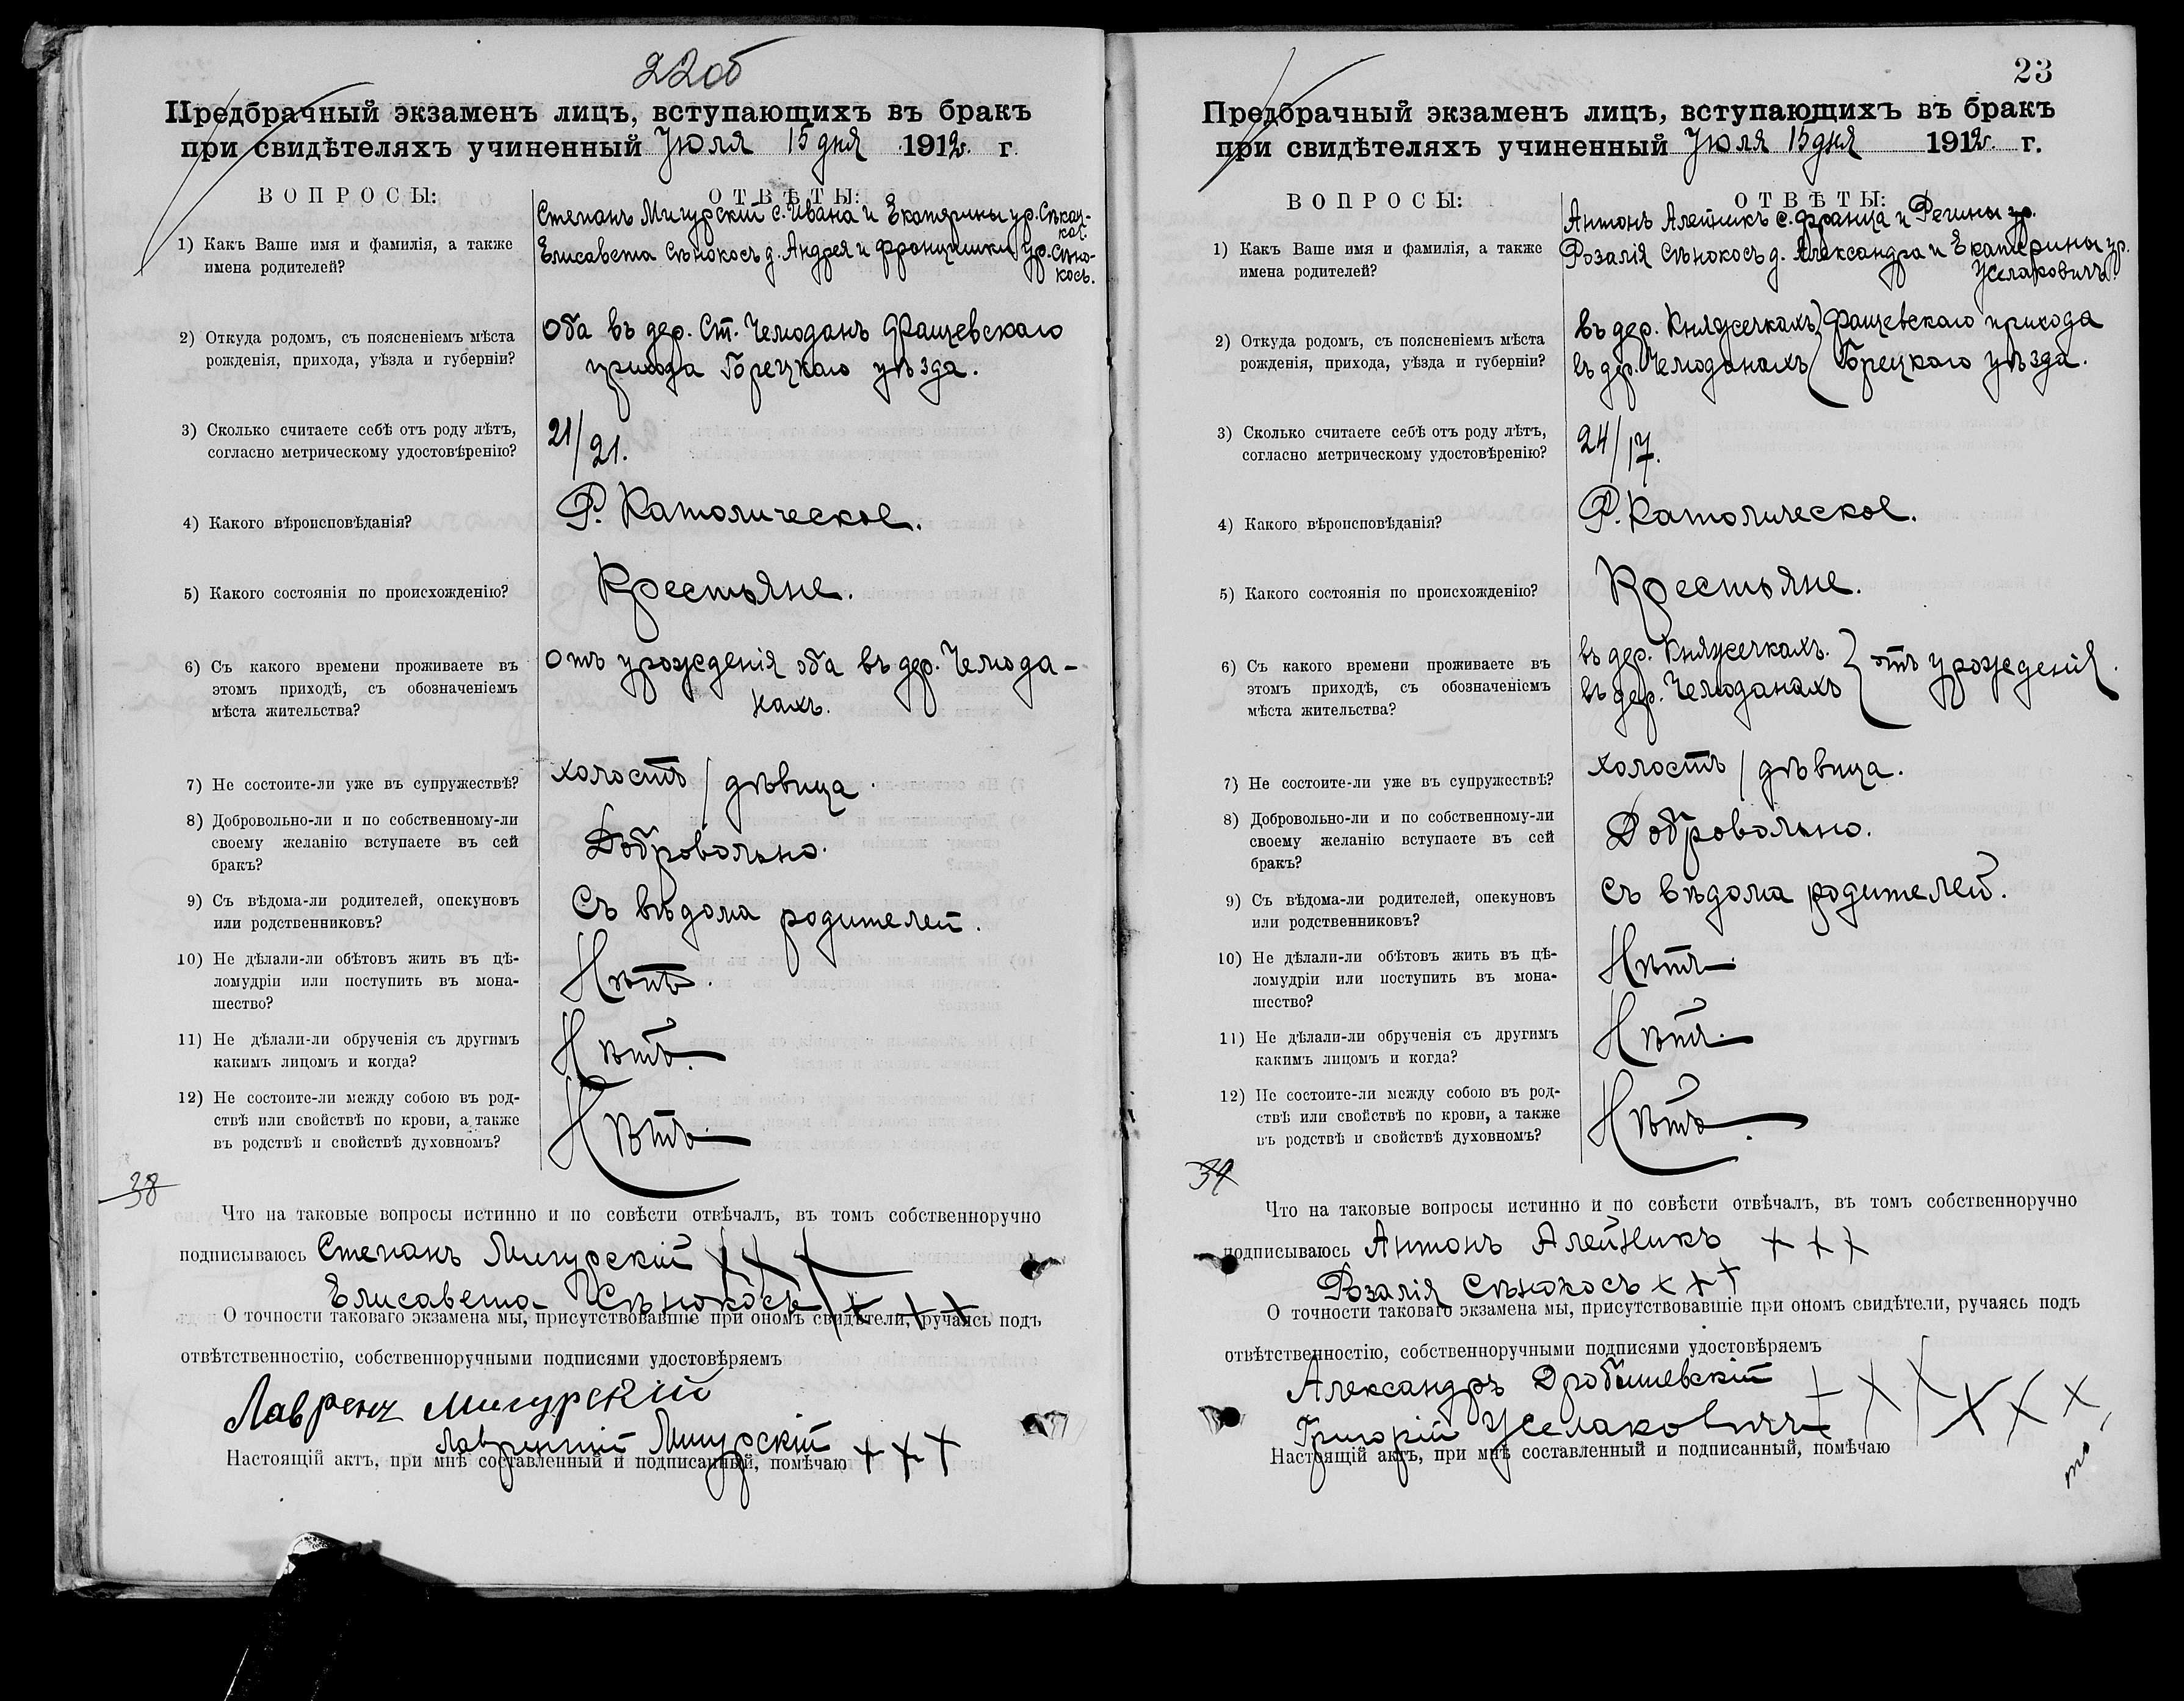 22об
Предбрачный экзаменъ лицъ, вступающихъ въ бракъ
при свидѣтеляхъ учиненный Июля 15 дня 1912 г.
ВОПРОСЫ:
ОТВѢТЫ:
1) Какъ Ваше имя и фамилія, а также
имена родителей?
Степанъ Мигурскій с. Ивана и Екатерины ур.
Елисавета Сѣнокосъ д. Андрея и Францишки ур. Сѣно-
косъ.
2) Откуда родомъ, съ поясненіемъ мѣста
рожденія, прихода, уѣзда и губерніи?
Оба въ дер. Ст. Чемоданъ Фащевскаго
прихода Горецкаго уѣзда.
3) Сколько считаете себѣ отъ роду лѣтъ,
согласно метрическому удостовѣренію?
21/21.
4) Какого вѣроисповѣданія?
Р. Католическое.
5) Какого состоянія по происхожденію?
Крестьяне.
6) Съ какого времени проживаете въ
этомъ приходѣ, съ обозначеніемъ
мѣста жительства?
Отъ урожденія оба въ дер. Чемода-
нахъ.
7) Не состоите-ли уже въ супружествѣ?
холостъ / дѣвица.
8) Добровольно-ли и по собственному-ли
своему желанію вступаете въ сей
бракъ?
Добровольно.
9) Съ вѣдома-ли родителей, опекуновъ
или родственниковъ?
Съ вѣдома родителей.
10) Не дѣлали-ли обѣтовъ жить въ цѣ-
ломудріи или поступить въ мона-
шество?
Нѣтъ.
11) Не дѣлали-ли обрученія съ другимъ
какимъ лицомъ и когда?
Нѣтъ.
12) Не состоите-ли между собою въ род-
ствѣ или свойствѣ по крови, а также
въ родствѣ и свойствѣ духовномъ?
Нѣтъ.
38
Что на таковые вопросы истинно и по совѣсти отвѣчалъ, въ томъ собственноручно
подписываюсь Степанъ Мигурскій + + +
Елисавета Сѣнокосъ + + +
О точности таковаго экзамена мы, присутствовавшіе при ономъ свидѣтели, ручаясь подъ
отвѣтственностію, собственноручными подписями удостовѣряемъ
Лавренц Мигурскій
Лаврентій Мигурскій + + +
Настоящій актъ, при мнѣ составленный и подписанный, помѣчаю
23
Предбрачный экзаменъ лицъ, вступающихъ въ бракъ
при свидѣтеляхъ учиненный Июля 15 дня 1912 г.
ВОПРОСЫ:
ОТВѢТЫ:
1) Какъ Ваше имя и фамилія, а также
имена родителей?
Антонъ Алейникъ с. Франца и Регины ур.
Розалія Сѣнокосъ д. Александра и Екатерины ур.
Уселаковичъ.
2) Откуда родомъ, съ поясненіемъ мѣста
рожденія, прихода, уѣзда и губерніи?
въ дер. Княжечкахъ } Фащевскаго прихода
въ дер. Чемоданахъ } Горецкаго уѣзда.
3) Сколько считаете себѣ отъ роду лѣтъ,
согласно метрическому удостовѣренію?
24/17.
4) Какого вѣроисповѣданія?
Р. Католическое.
5) Какого состоянія по происхожденію?
Крестьяне.
6) Съ какого времени проживаете въ
этомъ приходѣ, съ обозначеніемъ
мѣста жительства?
въ дер. Княжечкахъ. } отъ урожденія.
въ дер. Чемоданахъ
7) Не состоите-ли уже въ супружествѣ?
холостъ / дѣвица.
8) Добровольно-ли и по собственному-ли
своему желанію вступаете въ сей
бракъ?
Добровольно.
9) Съ вѣдома-ли родителей, опекуновъ
или родственниковъ?
Съ вѣдома родителей.
10) Не дѣлали-ли обѣтовъ жить въ цѣ-
ломудріи или поступить въ мона-
шество?
Нѣтъ.
11) Не дѣлали-ли обрученія съ другимъ
какимъ лицомъ и когда?
Нѣтъ.
12) Не состоите-ли между собою въ род-
ствѣ или свойствѣ по крови, а также
въ родствѣ и свойствѣ духовномъ?
Нѣтъ.
Что на таковые вопросы истинно и по совѣсти отвѣчалъ, въ томъ собственноручно
подписываюсь Антонъ Алейникъ + + +
Розалія Сѣнокосъ + + +
О точности таковаго экзамена мы, присутствовавшіе при ономъ свидѣтели, ручаясь подъ
отвѣтственностію, собственноручными подписями удостовѣряемъ
Александръ Дробышевскій + + +
Григорій Уселаковичъ + + +
Настоящій актъ, при мнѣ составленный и подписанный, помѣчаю